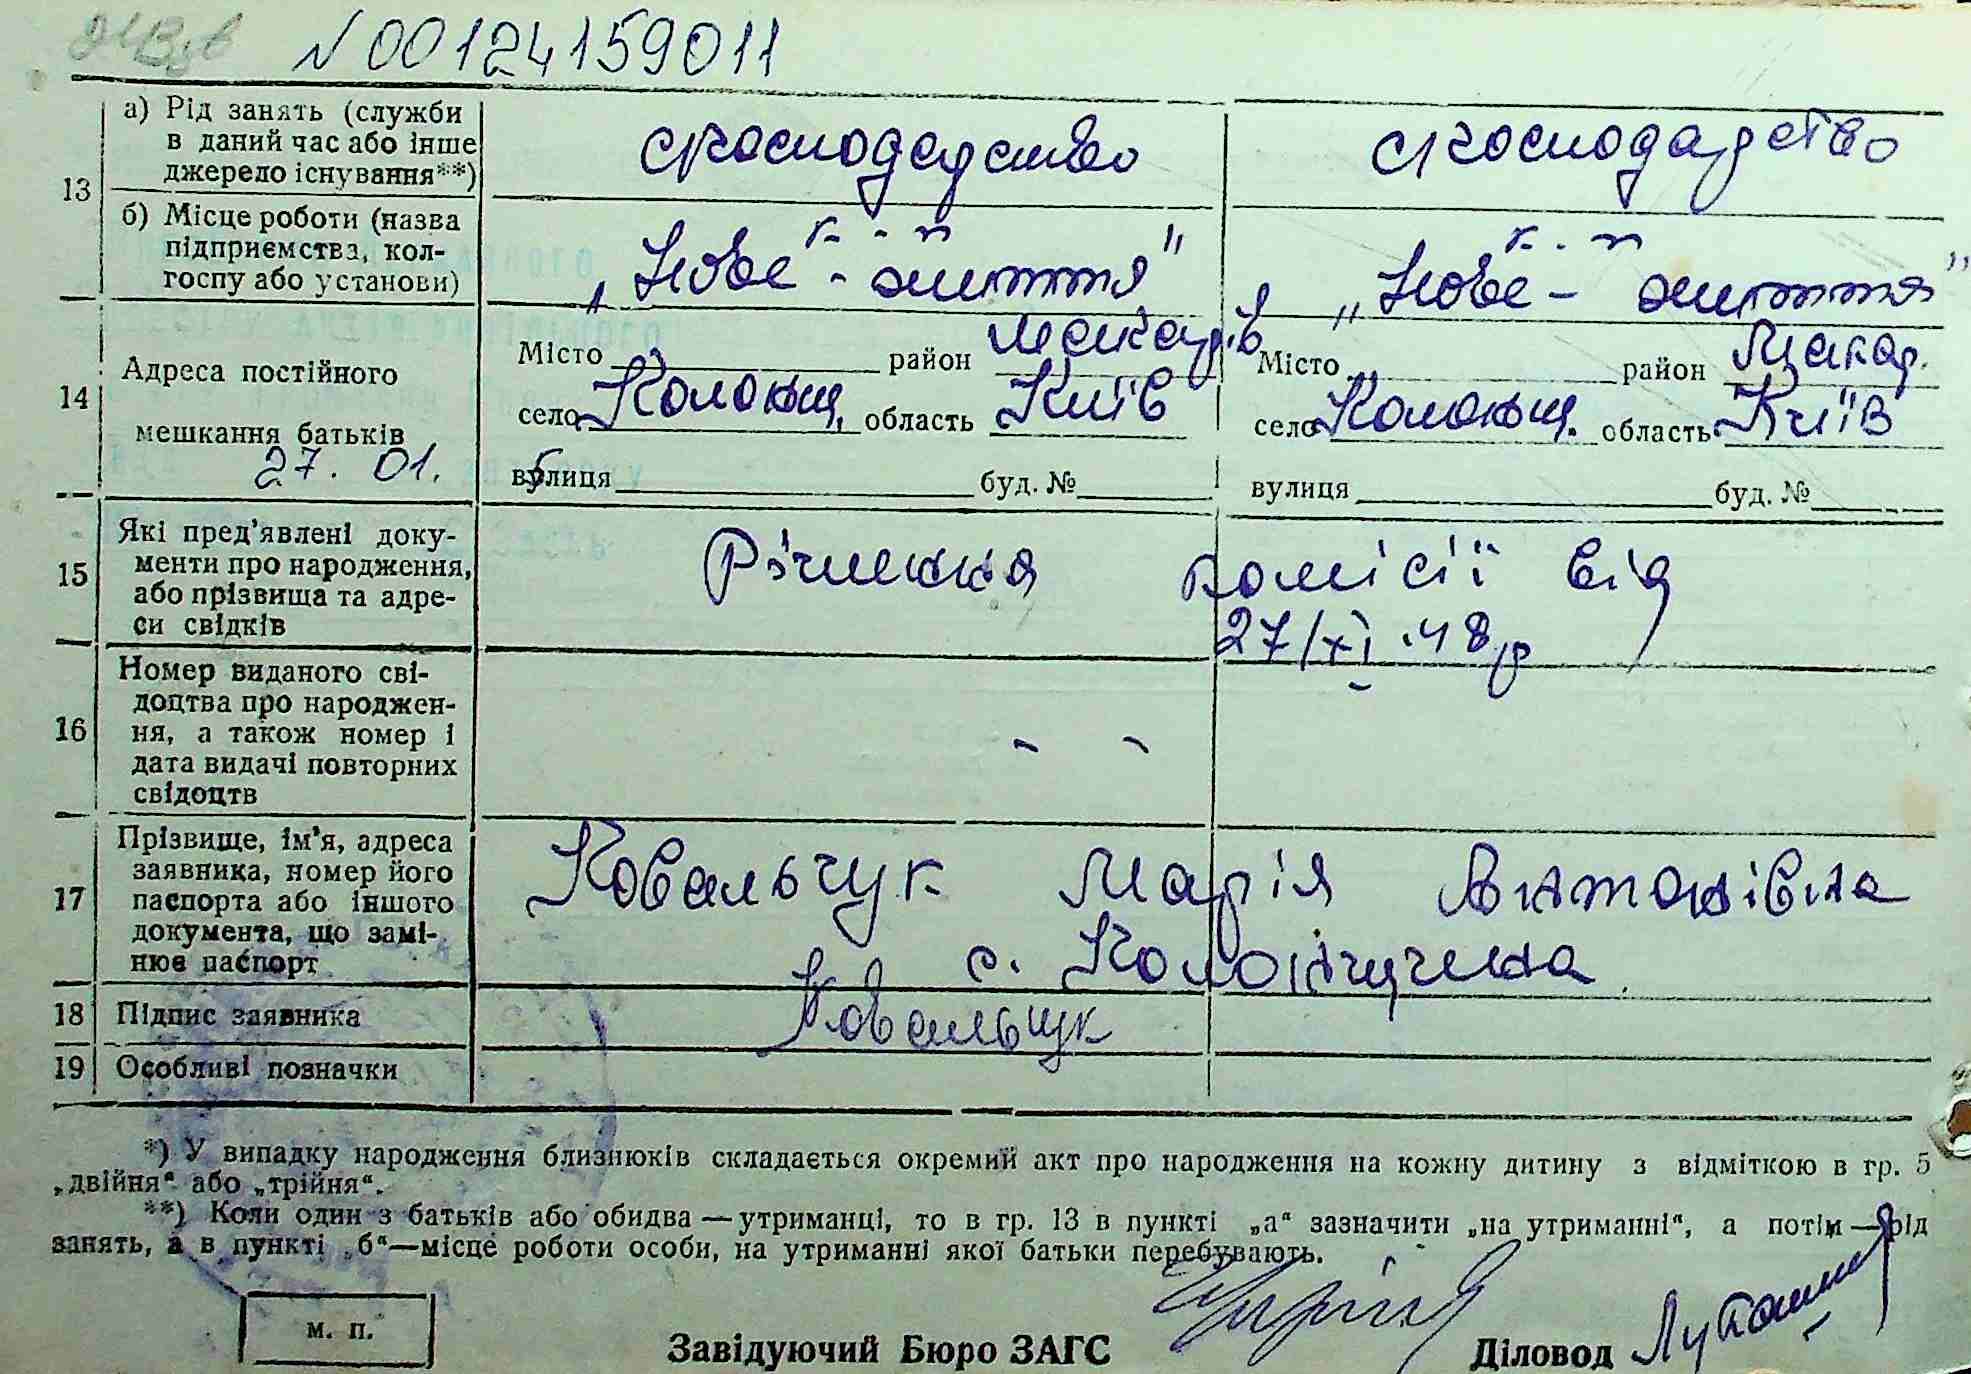 N00124159011
13
а) Рід занять (служби
в даний час або інше
джерело існування**)
сгосподарство
сгосподарство
б) Місце роботи (назва
підприємства, кол-
госпу або установи)
к-п
„Нове - життя"
к-п
„Нове - життя"
14
Адреса постійного
мешкання батьків
27. 01.
Місто район Макарів
село Колонщ. область Київ
вулиця буд. №
Місто район Макар.
село Колонщ. область Київ
вулиця буд. №
15
Які пред'явлені доку-
менти про народження,
або прізвища та адре-
си свідків
Рішення комісії від
27/XI.48р
16
Номер виданого сві-
доцтва про народжен-
ня, а також номер і
дата видачі повторних
свідоцтв
- -
17
Прізвище, ім'я, адреса
заявника, номер його
паспорта або іншого
документа, що замі-
нює паспорт
Ковальчук Марія Антонівна
с. Колонщина
18 Підпис заявника
Ковальчук
19 Особливі позначки
*) У випадку народження близнюків складається окремий акт про народження на кожну дитину з відміткою в гр. 5
„двійня" або „трійня".
**) Коли один з батьків або обидва — утриманці, то в гр. 13 в пункті „а" зазначити „на утриманні", а потім — рід
занять, а в пункті „б"—місце роботи особи, на утриманні якої батьки перебувають.
м. п.
Завідуючий Бюро ЗАГС
Діловод